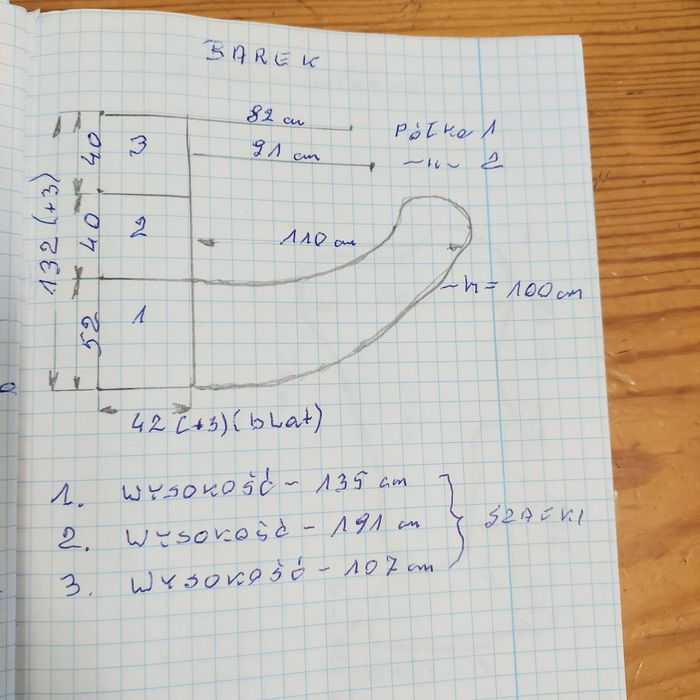 BAREK
82 cm
Półka 1
91 cm
-"- 2
40
3
132 (+3)
40
2
110 cm
~h = 100 cm
52
1
42 (+3) (blat)
1. WYSOKOŚĆ - 135 cm
2. WYSOKOŚĆ - 191 cm
3. WYSOKOŚĆ - 107 cm
SZAFKI